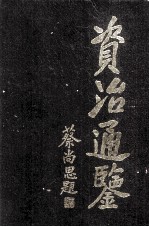 資治通鑒
蔡尚思題